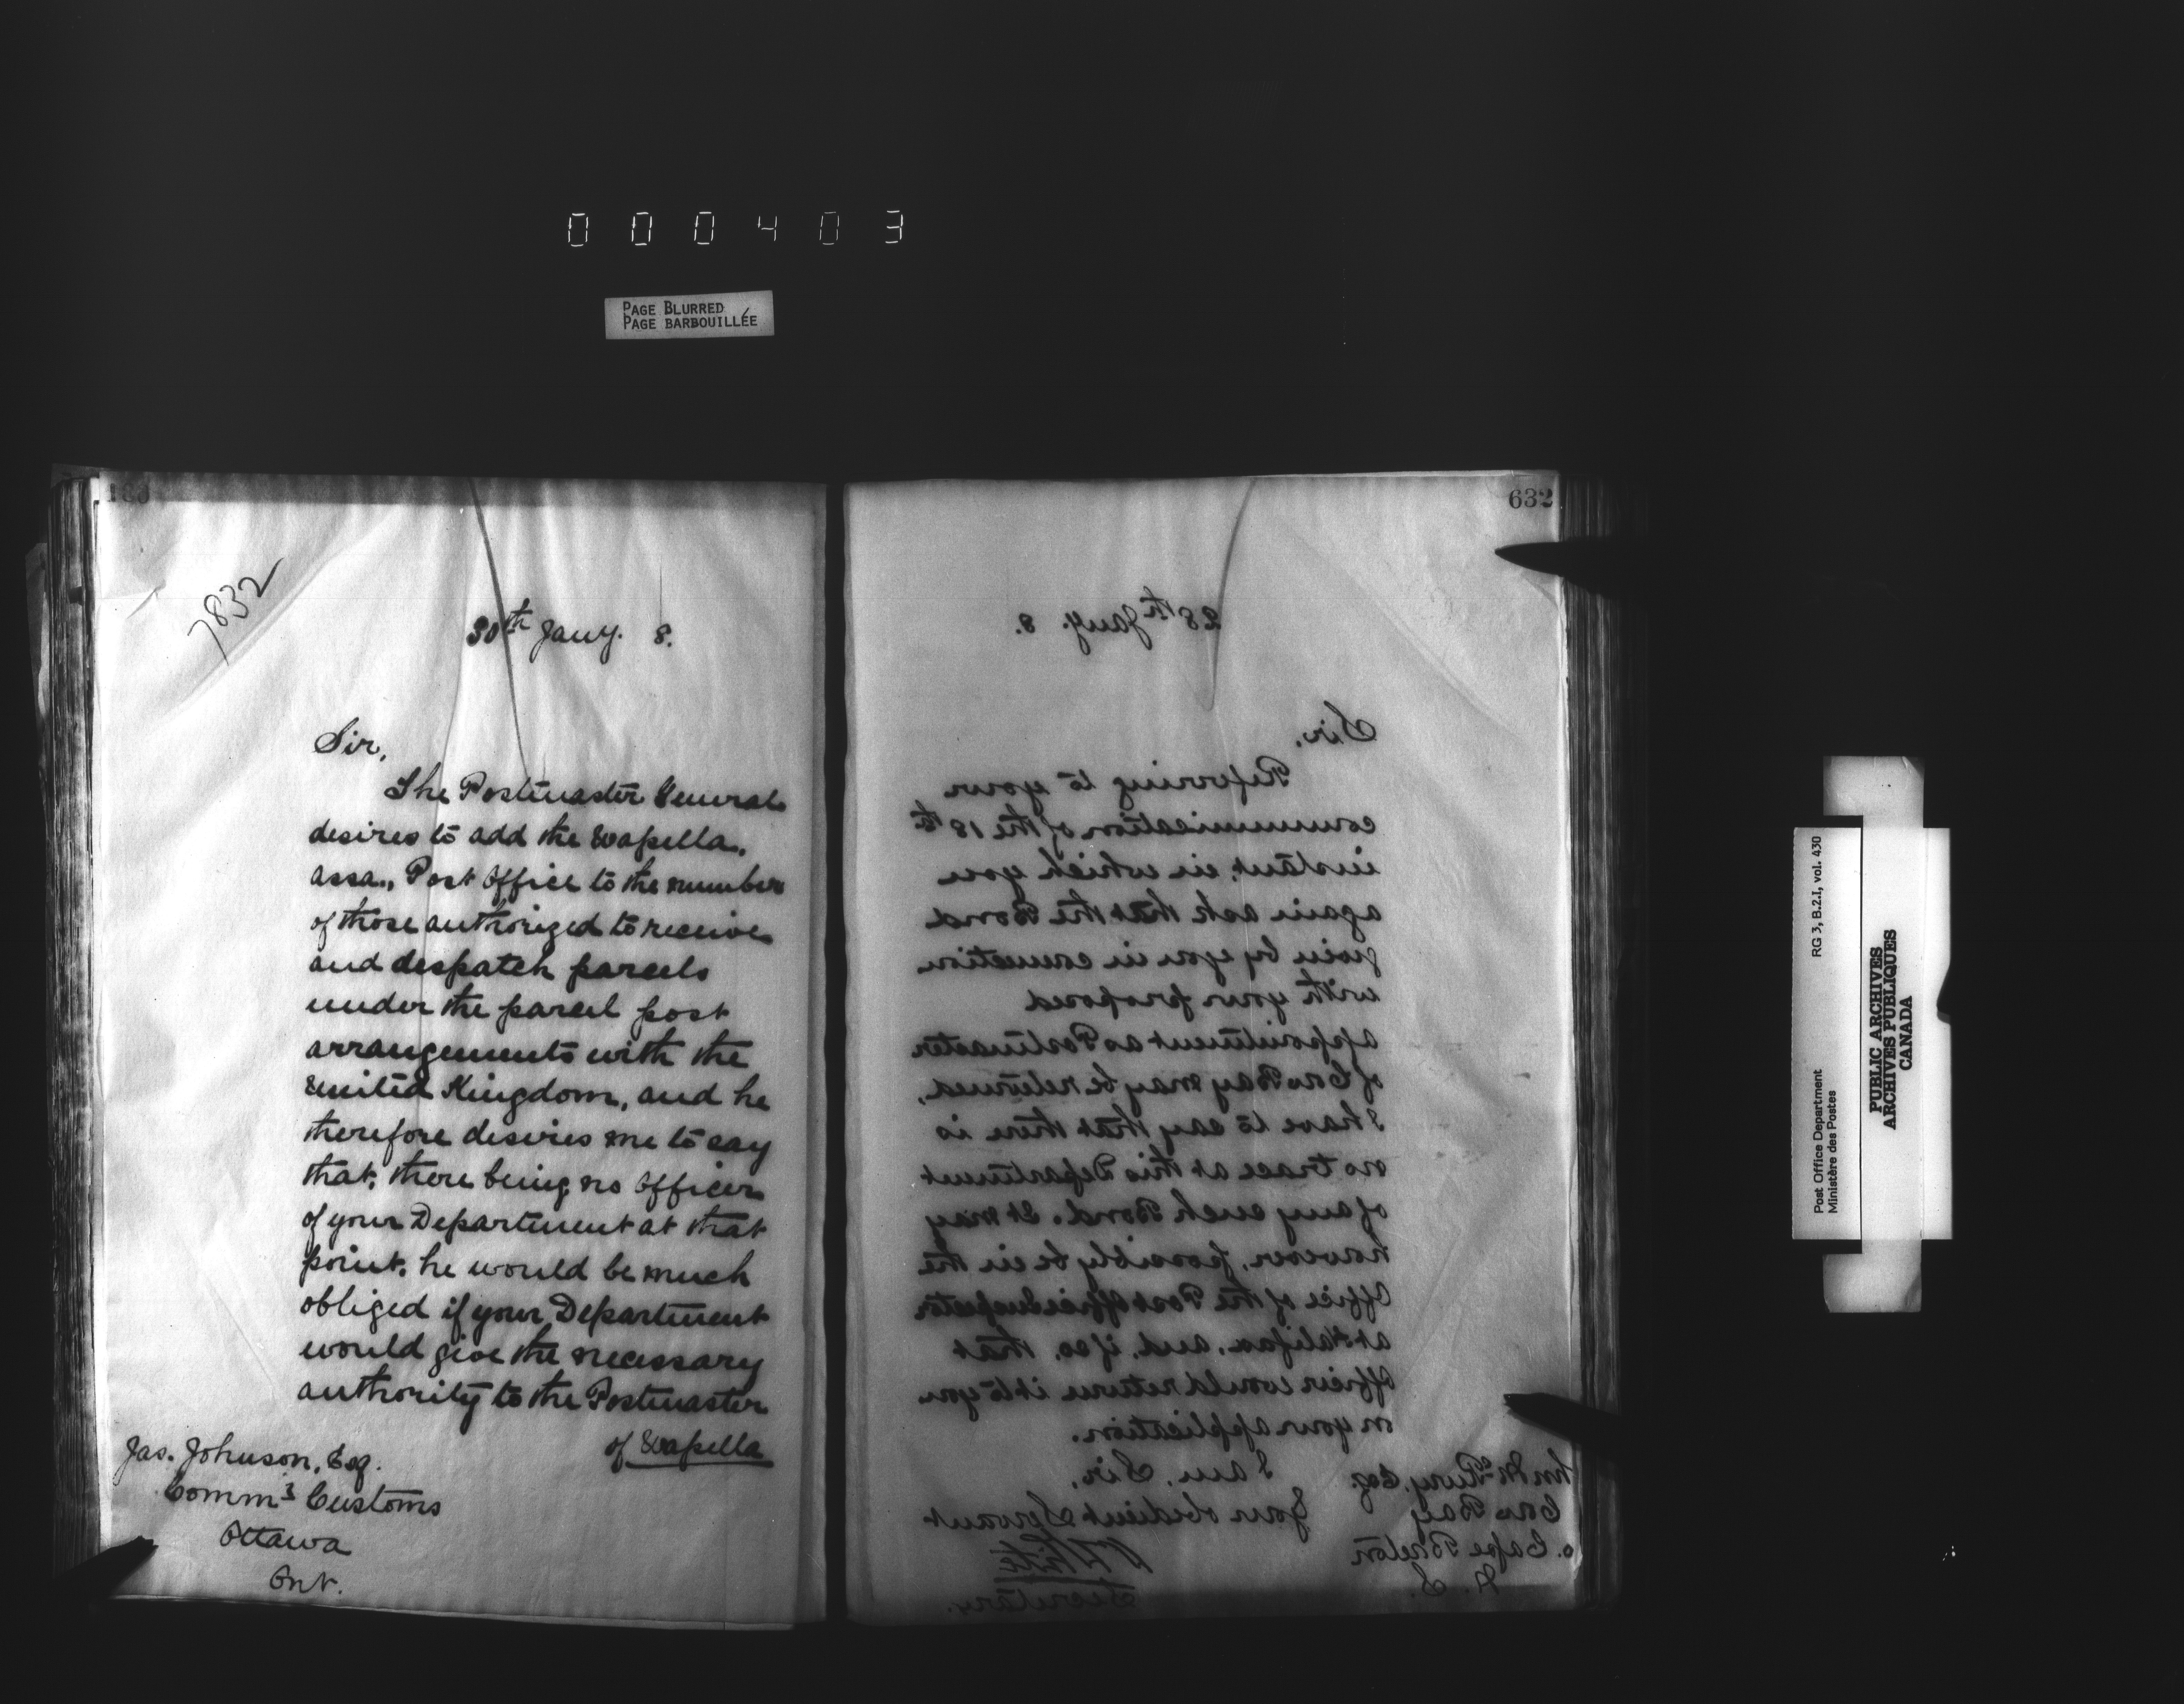 000403
PAGE BLURRED
PAGE BARBOUILLÉE
7832
30th Jany. 8.
Sir,
The Postmaster General
desires to add the Wapella,
Assa., Post Office to the number
of those authorized to receive
and despatch parcels
under the parcel post
arrangements with the
United Kingdom, and he
therefore desires me to say
that, there being no Officer
of your Department at that
point, he would be much
obliged if your Department
would give the necessary
authority to the Postmaster
of Wapella
Jas. Johnson, Esq.
Commr Customs
Ottawa
Ont.
632
28th Jany. 8.
Sir,
Referring to your
communication of the 18th
instant, in which you
again ask that the Bond
given by you in connection
with your proposed
appointment as Postmaster
of Cow Bay may be returned,
I have to say that there is
no trace at this Department
of any such Bond. It may
however, possibly be in the
Office of the Post Office Inspector
at Halifax, and, if so, that
officer would return it to you
on your application.
I am, Sir,
Your obedient Servant
White
Secretary.
Esq.
Cow Bay
Cape Breton
N. S.
Post Office Department
Ministère des Postes
RG 3, B.2.I, vol. 430
PUBLIC ARCHIVES
ARCHIVES PUBLIQUES
CANADA